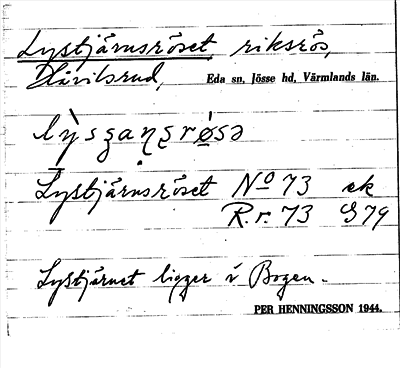 Lystjärnsröset riksrös,
Hävilsrud, Eda sn, Jösse hd, Värmlands län.
Lystjärnsröset No 73 ek
R.r. 73 S 79
Lystjärnet ligger i Bogen.
PER HENNINGSSON 1944.